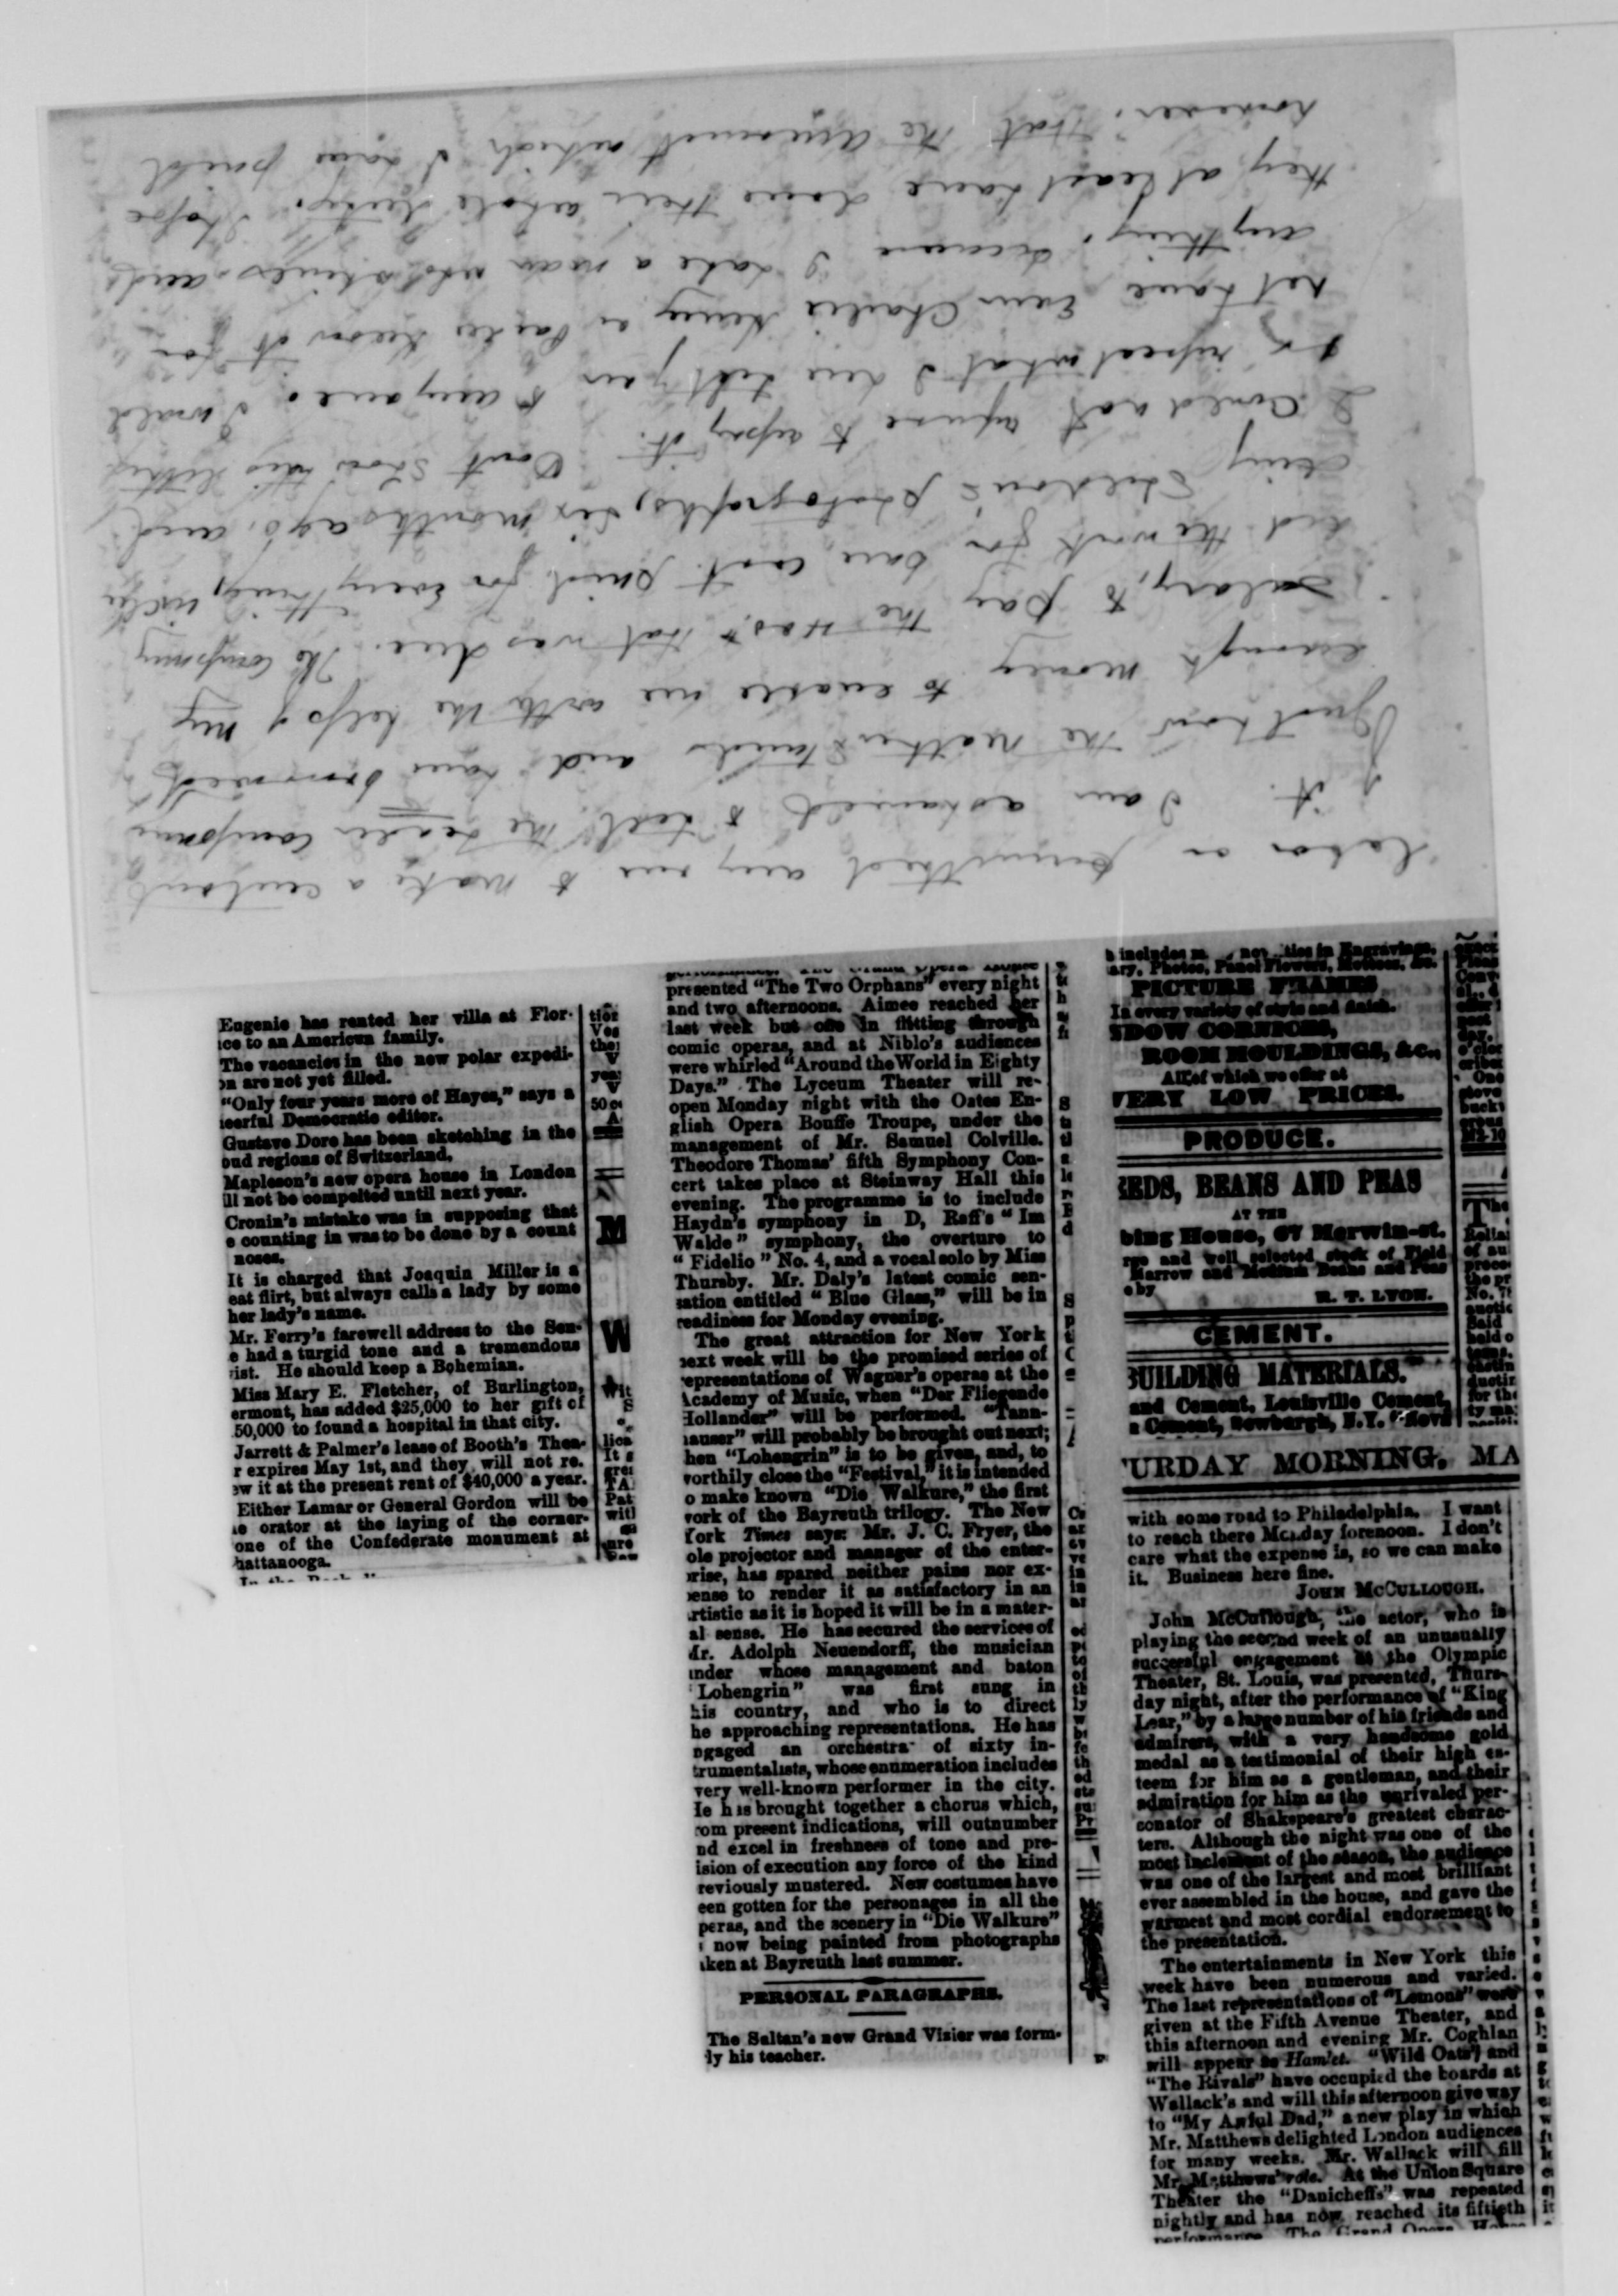 labor or permitted any one to make a cent out
of it. I am ashamed to tell the Leader Company
Just how the matter stands and have borrowed
enough money to enable me with the help of my
salary, to pay the that was due. The Company
did the work for bare cost. paid for every thing, inclu
ding photographs, six months ago, and
I could not refuse to repay it. Dont show this letter
or repeat what I have told you to anyone. I would
not have even Charlie Henry or know it for
anything, because I hate a man who whines and
they at least have done their whole duty. I hope
however, that the amount which I have paid
Eugenie has rented her villa at Flor-
ice to an American family.
The vacancies in the new polar expedi-
on are not yet filled.
"Only four years more of Hayes," says a
eerful Democratic editor.
Gustave Dore has been sketching in the
oud regions of Switzerland.
Mapleson's new opera house in London
ill not be compelted until next year.
Cronin's mistake was in supposing that
e counting in was to be done by a count
noses.
It is charged that Joaquin Miller is a
eat flirt, but always calls a lady by some
her lady's name.
Mr. Ferry's farewell address to the Sen-
e had a turgid tone and a tremendous
ist. He should keep a Bohemian.
Miss Mary E. Fletcher, of Burlington,
ermont, has added $25,000 to her gift of
50,000 to found a hospital in that city.
Jarrett & Palmer's lease of Booth's Thea-
r expires May 1st, and they will not re.
ew it at the present rent of $40,000 a year.
Either Lamar or General Gordon will be
e orator at the laying of the corner-
one of the Confederate monument at
hattanooga.
presented "The Two Orphans" every night
and two afternoons. Aimee reached her
last week but one in flitting through
comic operas, and at Niblo's audiences
were whirled "Around the World in Eighty
Days." The Lyceum Theater will re-
open Monday night with the Oates En-
glish Opera Bouffe Troupe, under the
management of Mr. Samuel Colville.
Theodore Thomas' fifth Symphony Con-
cert takes place at Steinway Hall this
evening. The programme is to include
Haydn's symphony in D, Raff's "Im
Walde" symphony, the overture to
"Fidelio" No. 4, and a vocal solo by Miss
Thursby. Mr. Daly's latest comic sen-
sation entitled "Blue Glass," will be in
readiness for Monday evening.
The great attraction for New York
next week will be the promised series of
epresentations of Wagner's operas at the
Academy of Music, when "Der Fliegende
Hollander" will be performed. "Tann-
hauser" will probably be brought out next;
hen "Lohengrin" is to be given, and, to
worthily close the "Festival," it is intended
o make known "Die Walkure," the first
work of the Bayreuth trilogy. The New
York Times says: Mr. J. C. Fryer, the
ole projector and manager of the enter-
prise, has spared neither pains nor ex-
pense to render it as satisfactory in an
artistic as it is hoped it will be in a mater-
al sense. He has secured the services of
Mr. Adolph Neuendorff, the musician
under whose management and baton
"Lohengrin" was first sung in
his country, and who is to direct
he approaching representations. He has
ngaged an orchestra of sixty in-
trumentalists, whose enumeration includes
very well-known performer in the city.
He has brought together a chorus which,
rom present indications, will outnumber
nd excel in freshness of tone and pre-
ision of execution any force of the kind
reviously mustered. New costumes have
een gotten for the personages in all the
peras, and the scenery in "Die Walkure"
now being painted from photographs
aken at Bayreuth last summer.
PERSONAL PARAGRAPHS.
The Sultan's new Grand Vizier was form-
ly his teacher.
h includes in Engravings,
ary, Photos, Panel Flowers, Mottoes, &c.
PICTURE FRAMES
In every variety of style and finish.
NDOW CORNICES,
ROOM MOULDINGS, &c.,
All of which we offer at
VERY LOW PRICES.
PRODUCE.
EEDS, BEANS AND PEAS
AT THE
bing House, 67 Merwin-st.
rge and well selected stock of Field
Marrow and Medium Beans and Peas
e by
R. T. LYON.
CEMENT.
BUILDING MATERIALS.
and Cement, Louisville Cement,
a Cement, Newburgh, N.Y.
TURDAY MORNING, MA
with some road to Philadelphia. I want
to reach there Monday forenoon. I don't
care what the expense is, so we can make
it. Business here fine.
JOHN MCCULLOUGH.
John McCullough, the actor, who is
playing the second week of an unusually
successful engagement at the Olympic
Theater, St. Louis, was presented, Thurs-
day night, after the performance of "King
Lear," by a large number of his friends and
admirers, with a very handsome gold
medal as a testimonial of their high es-
teem for him as a gentleman, and their
admiration for him as the unrivaled per-
sonator of Shakspeare's greatest charac-
ters. Although the night was one of the
most inclement of the season, the audience
was one of the largest and most brilliant
ever assembled in the house, and gave the
warmest and most cordial endorsement to
the presentation.
The entertainments in New York this
week have been numerous and varied.
The last representations of "Lemons" were
given at the Fifth Avenue Theater, and
this afternoon and evening Mr. Coghlan
will appear as Hamlet. "Wild Oats" and
"The Rivals" have occupied the boards at
Wallack's and will this afternoon give way
to "My Awful Dad," a new play in which
Mr. Matthews delighted London audiences
for many weeks. Mr. Wallack will fill
Mr. Matthews' role. At the Union Square
Theater the "Danicheffs" was repeated
nightly and has now reached its fiftieth
performance. The Grand Opera House